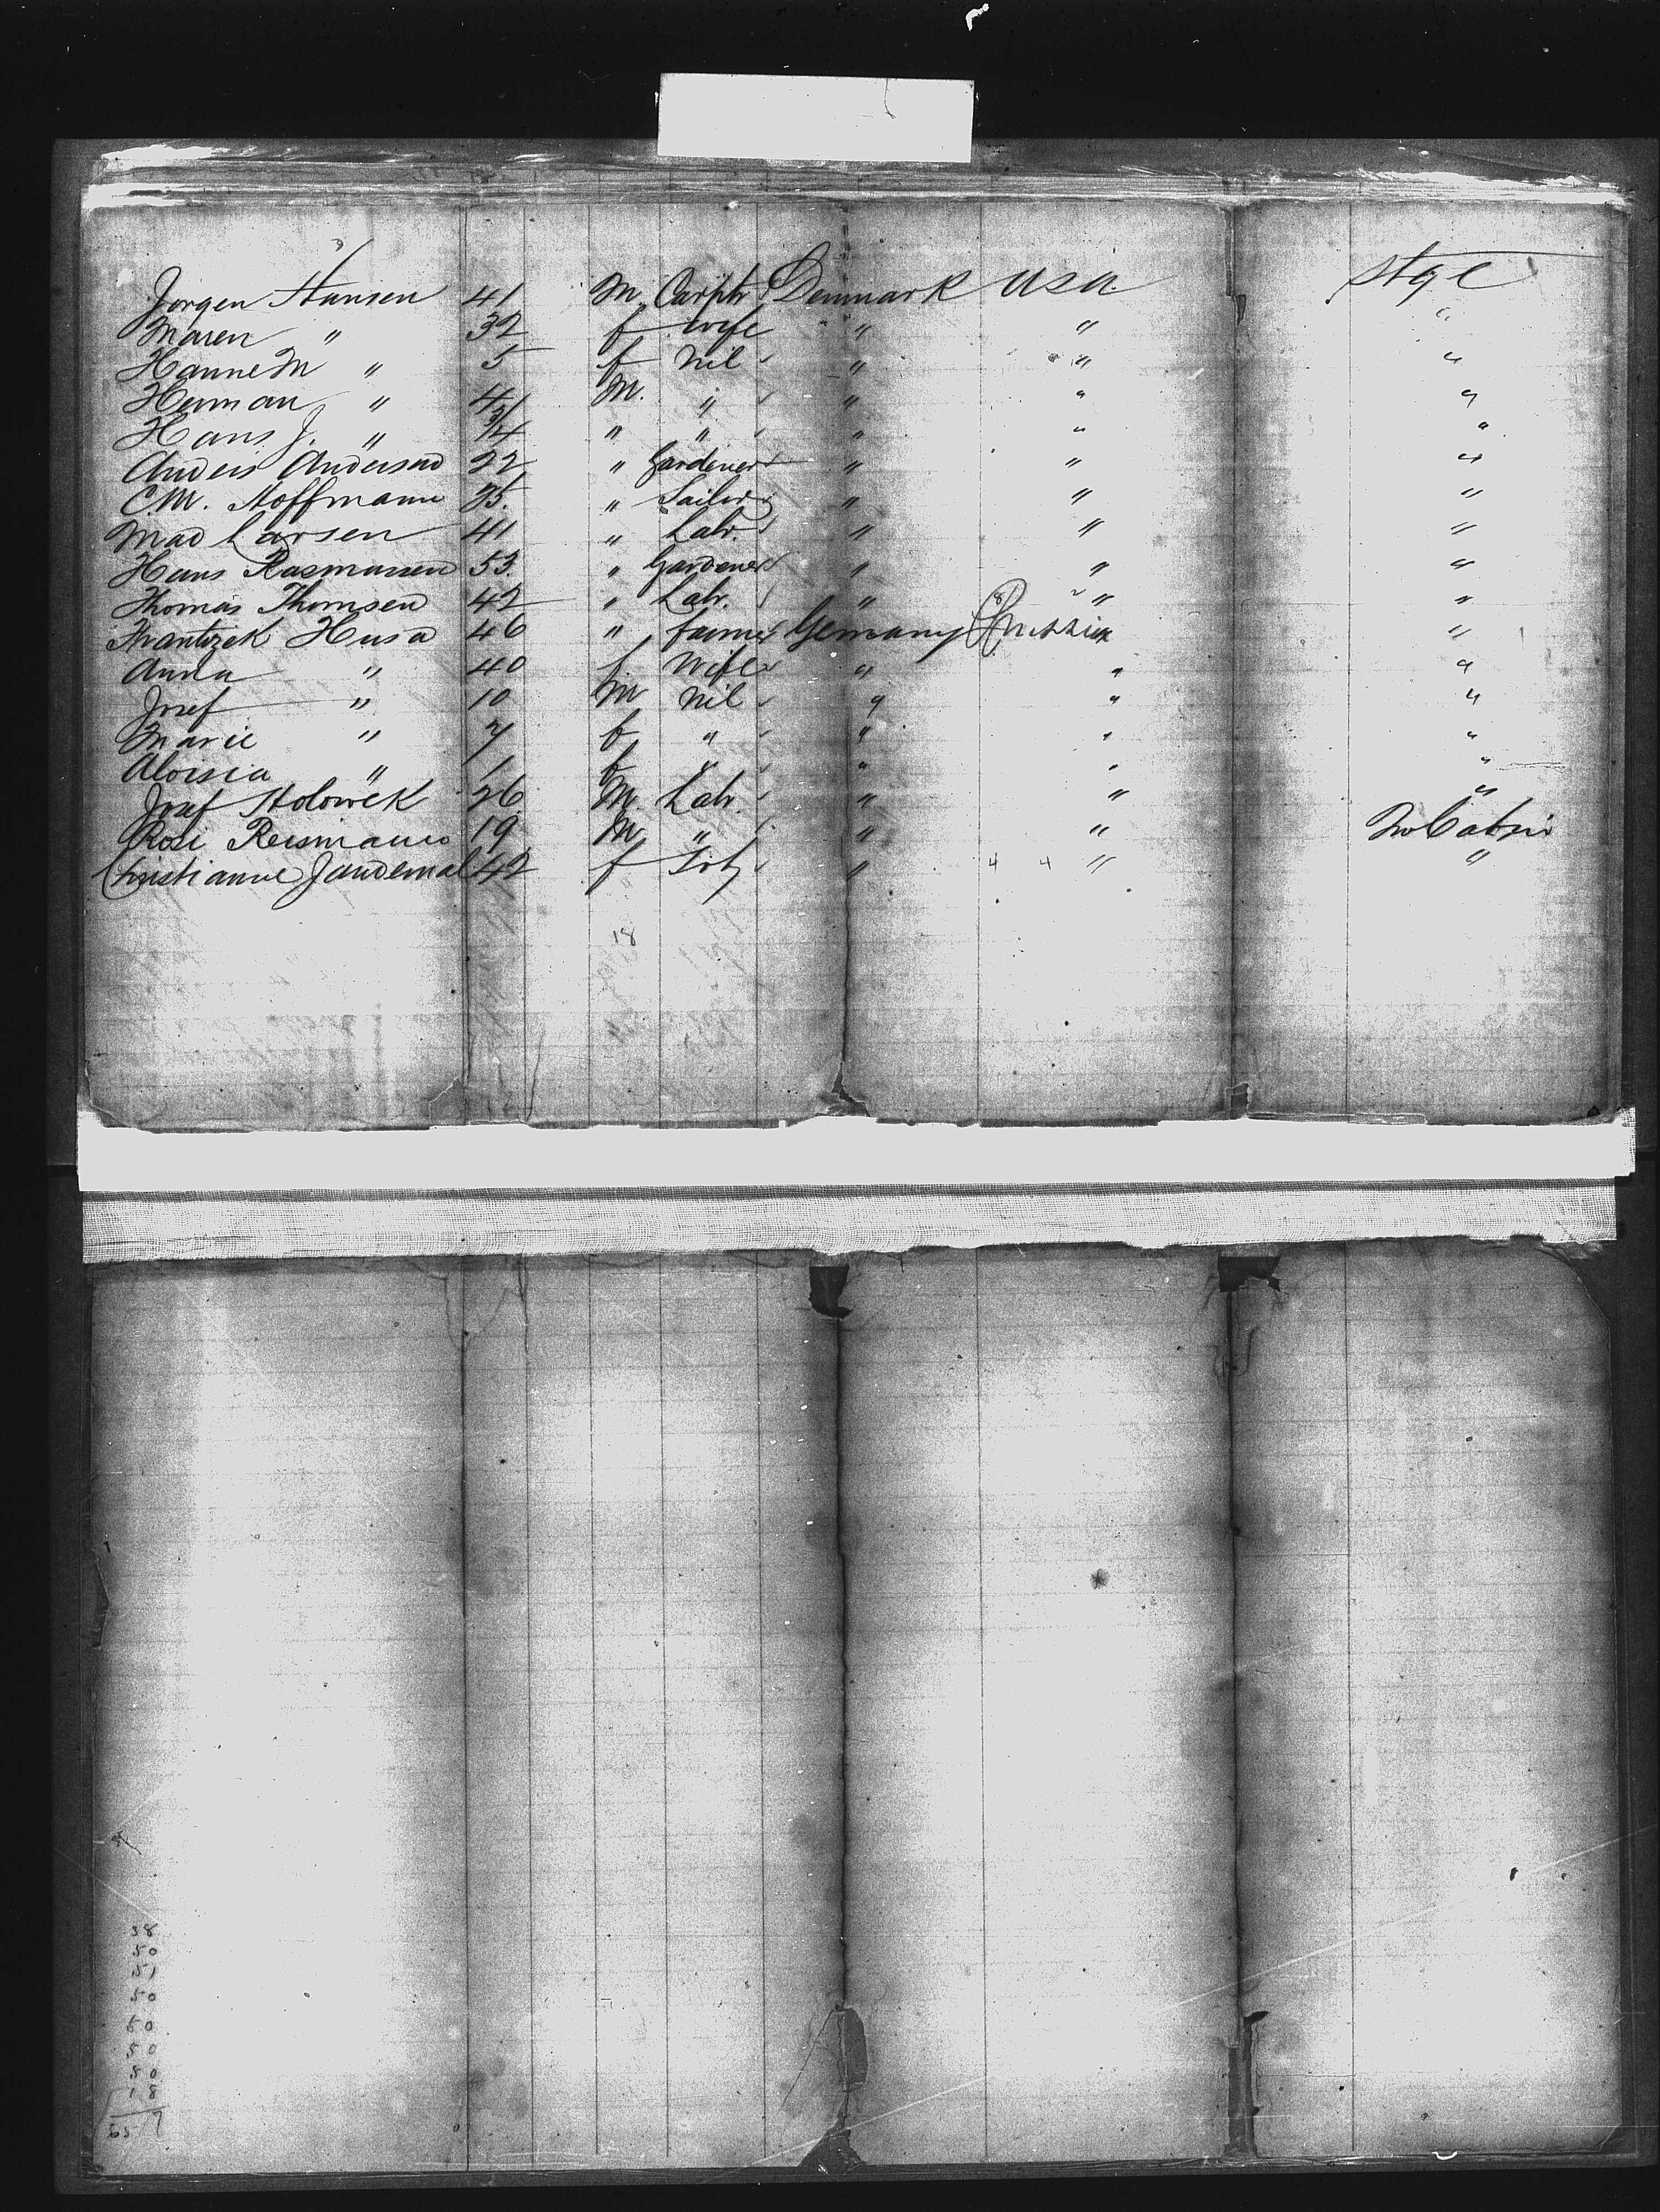 Jorgen Hansen 41 M Carptr Denmark USA Stge
Maren " 32 f wife " " "
Hanne M " 5 f nil " " "
Herman " 4 M. " " " "
Hans J. " " " " " "
Anders Andersen 22 " Gardener " " "
C.M. Hoffmann 25. " Sailor " " "
Mad Larsen 41 " Labr. " " "
Hans Rasmussen 53. " Gardener " " "
Thomas Thomsen 42 " Labr. " " "
Frantizek Husa 46 " farmer Germany "
Anna " 40 f Wife " " "
Josef " 10 M nil " " "
Marie " 7 f " " " "
Aloisia " 1 f " " " "
Josef Holowek 26 M. Labr. " " "
Rosi Reismann 19 M " " " Cabin
Christianne Jandemal 42 f " 4 4 " "
18
38
50
51
50
50
50
50
18